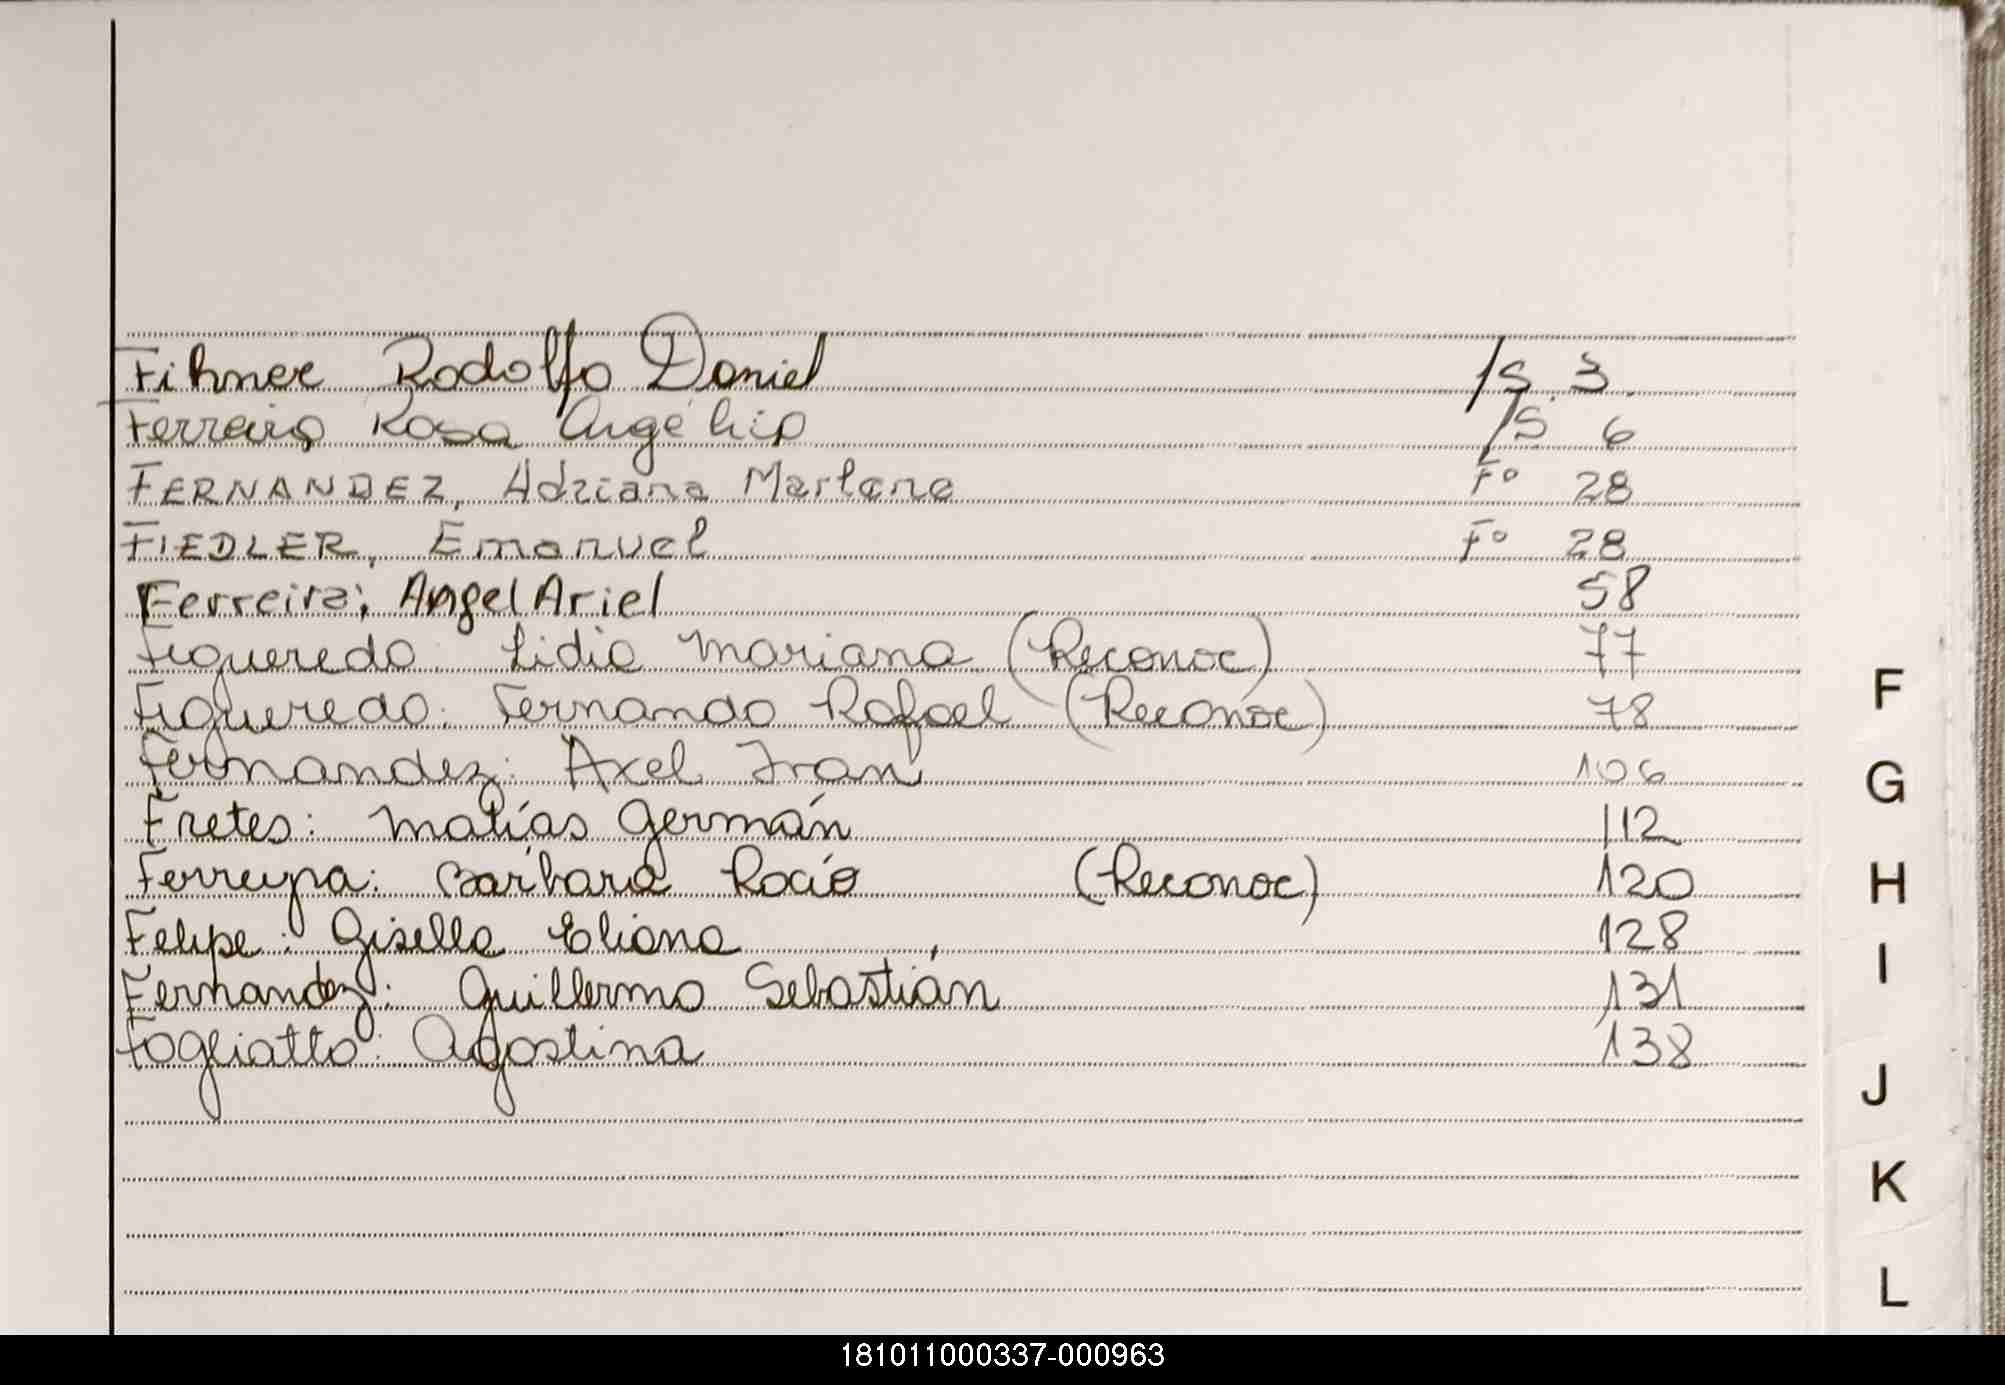 Fihner Rodolfo Daniel /S. 3
Ferreira Rosa Angélica /S 6
FERNANDEZ, Adriana Marlene Fº 28
FIEDLER, Emanuel Fº 28
Ferreira; Angel Ariel 58
Figueredo: Lidia Mariana (Reconoc) 77
Figueredo: Fernando Rafael (Reconoc) 78
Fernandez: Axel Ivan 106
Fretes: Matías Germán 112
Ferreyra: Bárbara Rocío (Reconoc) 120
Felipe: Gisella Eliana 128
Fernandez: Guillermo Sebastián 131
Fogliatto: Agostina 138
F
G
H
I
J
K
L
181011000337-000963